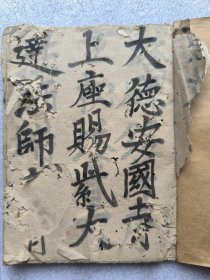 大德安國寺
上座賜紫大
達法師